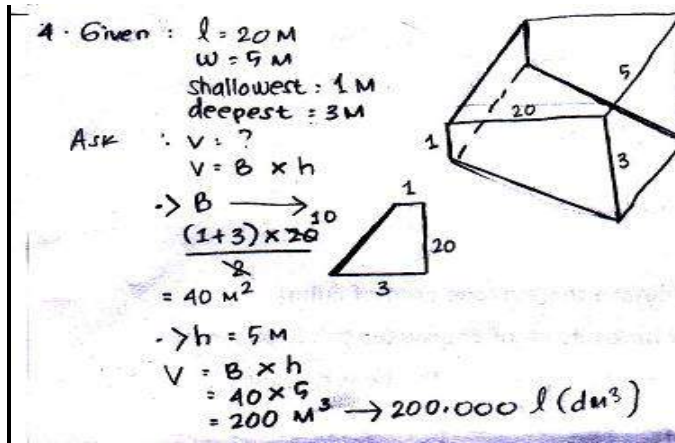 4. Given : l = 20 M
w = 5 M
shallowest : 1 M
deepest : 3 M
Ask : V = ?
V = B x h
-> B → 1
(1+3) x 20 10
2
20
3
= 40 M²
-> h = 5 M
V = B x h
= 40 x 5
= 200 M³ → 200.000 l (dm³)
5
20
1
3